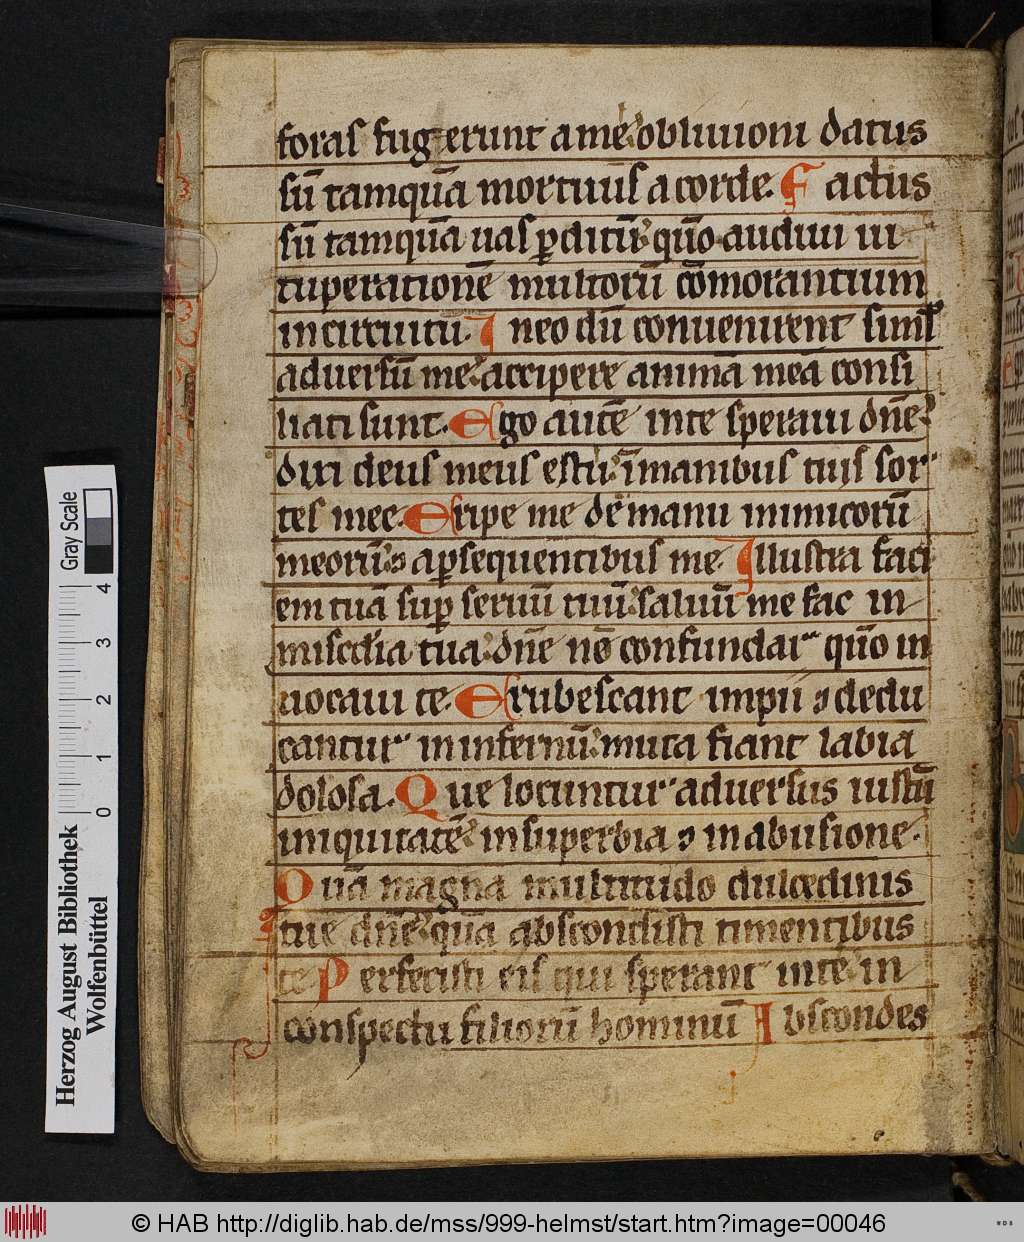 foras fugerunt a me obliuioni datus
sū tamquā mortuus a corde. Factus
sū tamquā uas ꝑditū quō audiui ui
tuperationē multorū cōmorantium
in circuitu. In eo dū conuenirent simł
aduersū me accipere animā meā consi
liati sunt. Ego autē in te speraui dn̄e
dixi deus meus es tu ī manibus tuis sor
tes mee. Eripe me de manu inimicorū
meorū ⁊ a ꝑsequentibus me. Illustra faci
em tuā suꝑ seruū tuū saluū me fac in
miscdīa tua dn̄e nō confundar quō in
uocaui te. Erubescant impii ⁊ dedu
cantur in infernū muta fiant labia
dolosa. Que locuntur aduersus iustū
iniquitatē in superbia ⁊ in abusione.
Quā magna multitudo dulcedinis
tue dn̄e quā abscondisti timentibus
te Perfecisti eis qui sperant in te in
conspectu filiorū hominū Abscondes
Gray Scale
4 3 2 1 0
Herzog August Bibliothek
Wolfenbüttel
© HAB http://diglib.hab.de/mss/999-helmst/start.htm?image=00046